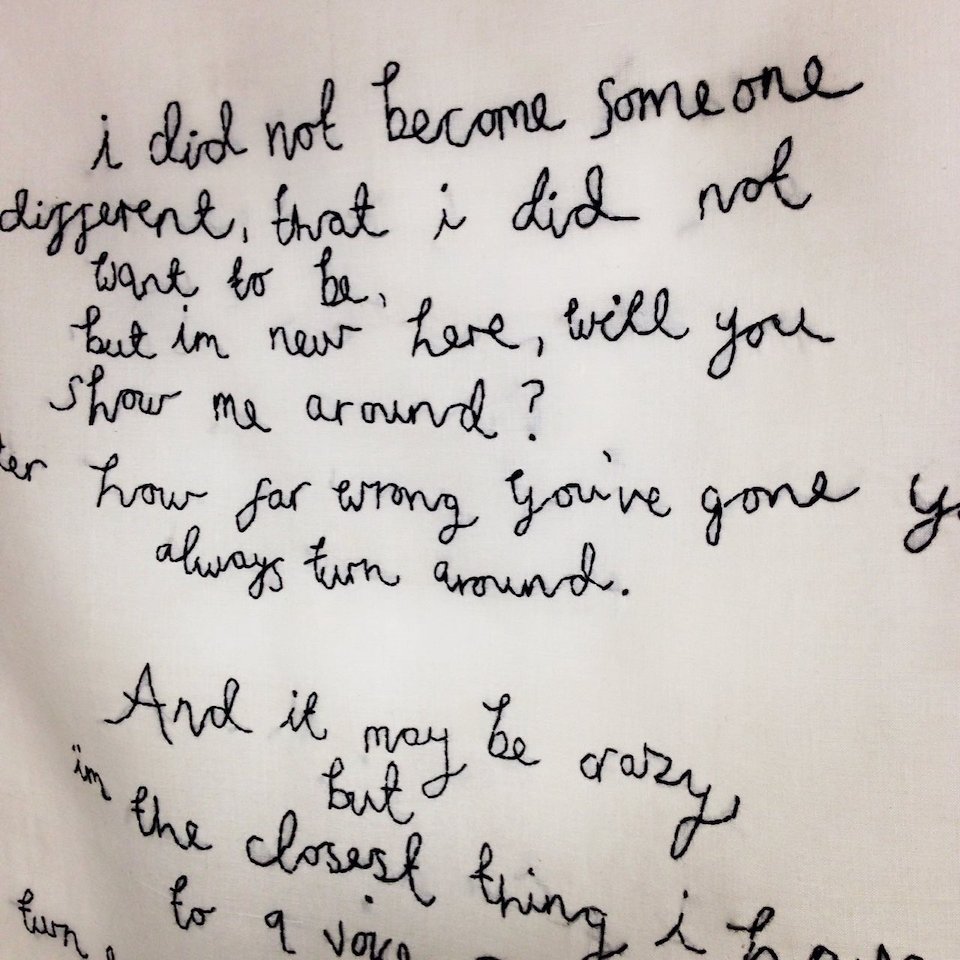 i did not become someone
different, that i did not
want to be,
but im new here, will you
show me around?
ter how far wrong you've gone y
always turn around.
And it may be crazy,
but
im the closest thing i have
to a voice
turn